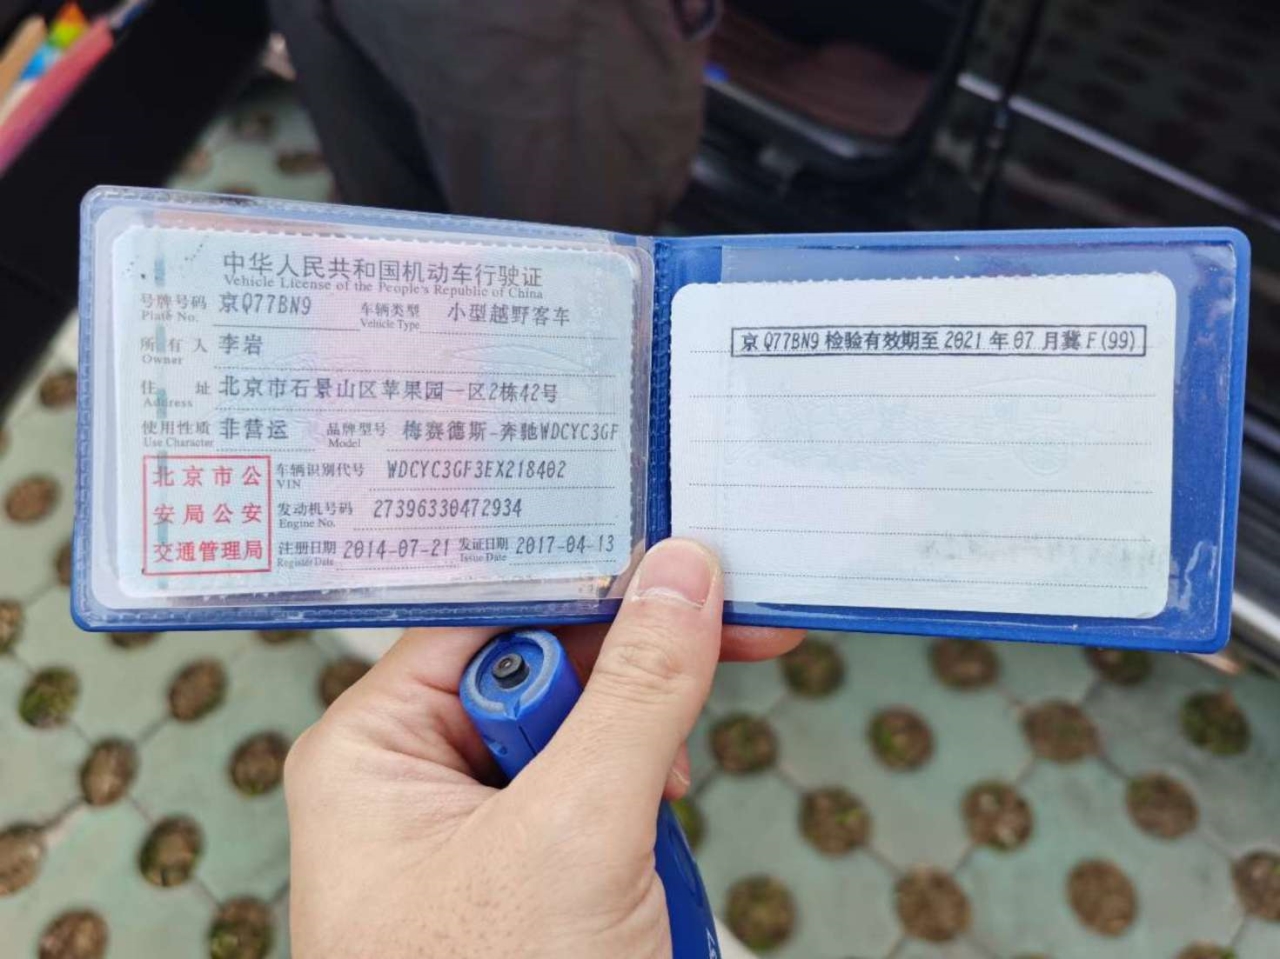 中华人民共和国机动车行驶证
Vehicle License of the People's Republic of China
号牌号码 京Q77BN9 车辆类型 小型越野客车
Plate No. Vehicle Type
所有人 李岩
Owner
住址 北京市石景山区苹果园一区2栋42号
Address
使用性质 非营运 品牌型号 梅赛德斯-奔驰WDCYC3GF
Use Character Model
北京市公
安局公安
交通管理局
车辆识别代号 WDCYC3GF3EX218402
VIN
发动机号码 27396330472934
Engine No.
注册日期 2014-07-21 发证日期 2017-04-13
Register Date Issue Date
京Q77BN9检验有效期至2021年07月冀F(99)